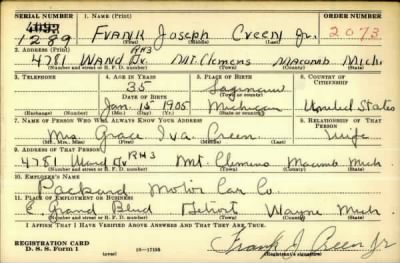 SERIAL NUMBER 1. NAME (Print) ORDER NUMBER
1289 FRANK Joseph Creen Jr. 2073
(First) (Middle) (Last)
2. ADDRESS (Print)
RH3
4781 WAND Dr. Mt. Clemens Macomb Mich.
(Number and street or R. F. D. number) (Town) (County) (State)
3. TELEPHONE 4. AGE IN YEARS 5. PLACE OF BIRTH 6. COUNTRY OF CITIZENSHIP
35 Saginaw
(Town or county)
DATE OF BIRTH
Jan. 15 1905 Michigan United States
(Exchange) (Number) (Mo.) (Day) (Yr.) (State or country)
7. NAME OF PERSON WHO WILL ALWAYS KNOW YOUR ADDRESS 8. RELATIONSHIP OF THAT PERSON
Mrs. Grace Iva Creen Wife
(Mr., Mrs., Miss) (First) (Middle) (Last)
9. ADDRESS OF THAT PERSON
RH3
4781 Wand Dr Mt. Clemens Macomb Mich
(Number and street or R. F. D. number) (Town) (County) (State)
10. EMPLOYER'S NAME
Packard Motor Car Co.
11. PLACE OF EMPLOYMENT OR BUSINESS
E. Grand Blvd Detroit Wayne Mich.
(Number and street or R. F. D. number) (Town) (County) (State)
I AFFIRM THAT I HAVE VERIFIED ABOVE ANSWERS AND THAT THEY ARE TRUE.
REGISTRATION CARD
D. S. S. Form 1 (over) 16—17105 Frank J Creen Jr
(Registrant's signature)